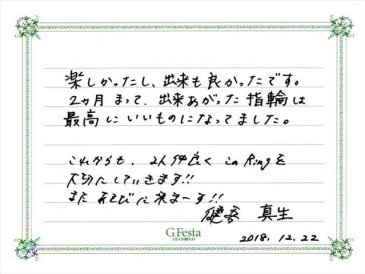 楽しかったし、出来も良かったです。
2ヵ月まって、出来あがった指輪は
最高にいいものになってました。
これからも、2人仲良く この Ringを
大切にしていきます!!
また あそびに来まーす!!
健吾 真生
G.Festa
DIAMOND
2018.12.22